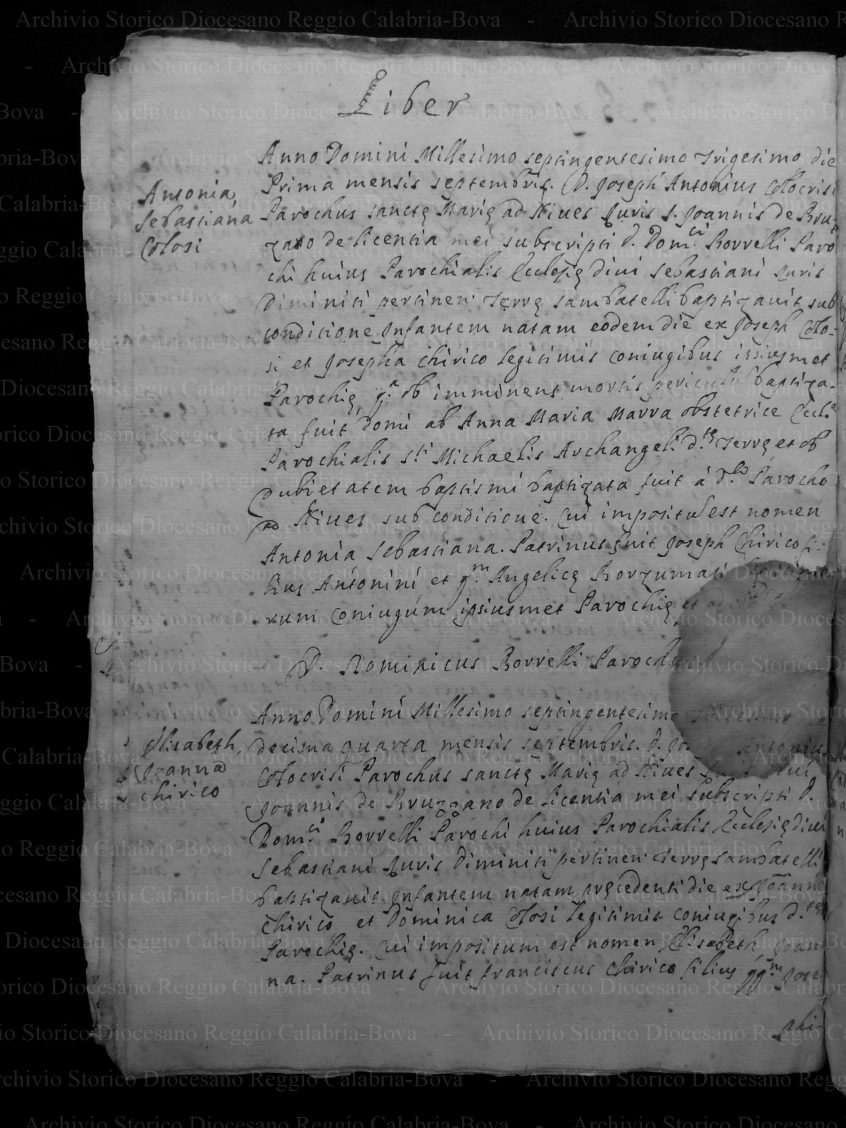 Liber
Antonia
Sebastiana
Colosi
Anno Domini Millesimo septingentesimo trigesimo die
Prima mensis septembris. D. Joseph Antonius Colocrisi
Parochus sanctę Marię ad Nives Juris S. Joannis de Bru-
zano de licentia mei subscripti D. Dom.ci Borrelli Paro
chi huius Parochialis Ecclesię divi Sebastiani Juris
Diminiti pertinen: Terrę Sambatelli baptizavit sub
conditione Infantem natam eodem die ex Joseph Colo-
si et Josepha Chirico legitimis coniugibus ipsiusmet
Parochię, q.a ob imminens mortis periculu baptiza-
ta fuit Domi ab Anna Maria Marra obstetrice Eccl.ę
Parochialis S.ti Michaelis Archangeli d.tę Terrę et ob
dubietatem baptismi baptizata fuit á d.to Parocho
ad Nives sub conditione. Cui impositu est nomen
Antonia Sebastiana. Patrinus fuit Joseph Chirico fi-
lius Antonini et q.m Angelicę Borzumati
rum coniugum ipsiusmet Parochię et
D. Dominicus Borrelli Parochus
Elisabeth
Joanna
Chirico
Anno Domini Millesimo septingentesimo
decima quarta mensis septembris. D. Antonius
Colocrisi Parochus sanctę Marię ad Nives
Joannis de Bruzzano de licentia mei subscripti D.
Dom.ci Borrelli Parochi huius Parochialis Ecclesię divi
Sebastiani Juris Diminiti pertinen: Terrę Sambatelli
baptizavit Infantem natam pręcedenti die ex Joanne
Chirico et Dominica Colosi legitimis coniugibus d.tę
Parochię. Cui impositum est nomen Elisabeth Joan
na. Patrinus fuit Franciscus Chirico filius qq.m Jose
phi